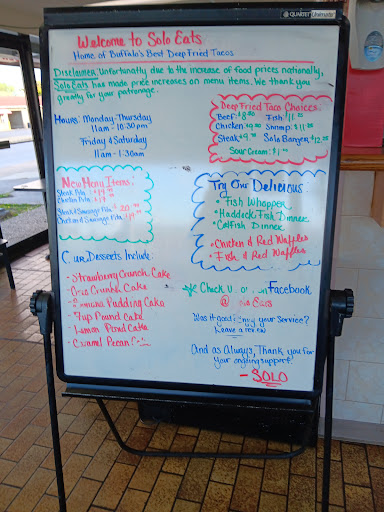 QUARTET
Welcome to Solo Eats
Home of Buffalo's Best Deep Fried Tacos
Disclaimer: Unfortunatly due to the increase of food prices nationally,
Solo Eats has made price increases on menu items. We thank you
greatly for your patronage.
Hours: Monday-Thursday
11am - 10:30 pm
Friday & Saturday
11am - 1:30am
Deep Fried Taco Choices:
Beef: Fish:
Chicken Shrimp:
Steak Solo Banger
Sour Cream:
New Menu Items:
Steak Pita
Chicken Pita
Steak & Sausage Pita
Chicken & Sausage Pita
Try Our Delicious:
• Fish Whopper
• Haddock Fish Dinner
• Catfish Dinner
• Chicken & Red Waffles
• Fish & Red Waffles
Our Desserts Include:
- Strawberry Crunch Cake
- Crunch Cake
- Pudding Cake
- 7up Pound Cake
- Lemon Pound Cake
- Caramel Pecan
Check Facebook
@
Was it good? Enjoy your Service?
Leave a review
And as Always, Thank you for
your ongoing support!
- SOLO